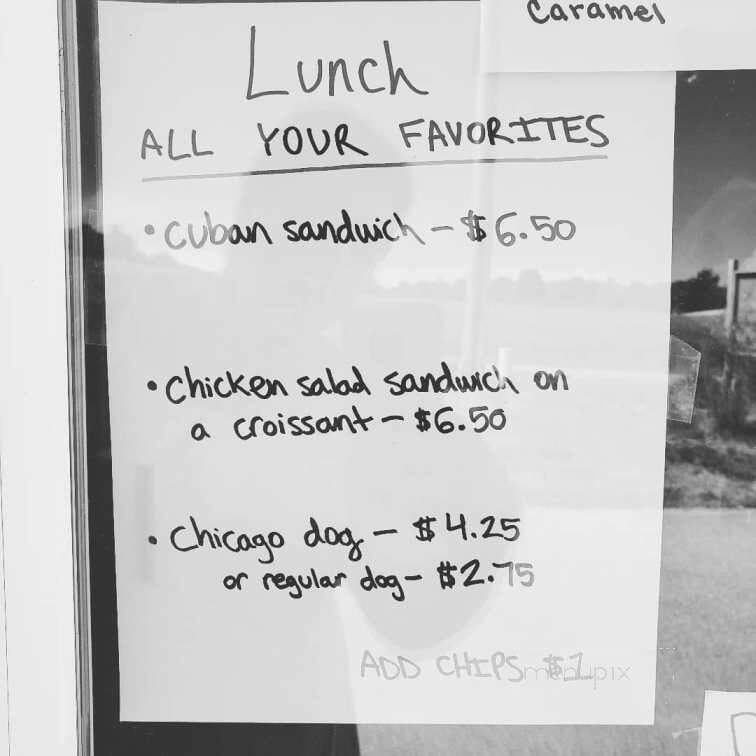 Caramel
Lunch
ALL YOUR FAVORITES
• Cuban sandwich - $6.50
• Chicken salad sandwich on
a croissant - $6.50
• Chicago dog - $4.25
or regular dog - $2.75
ADD CHIPS $1
menupix